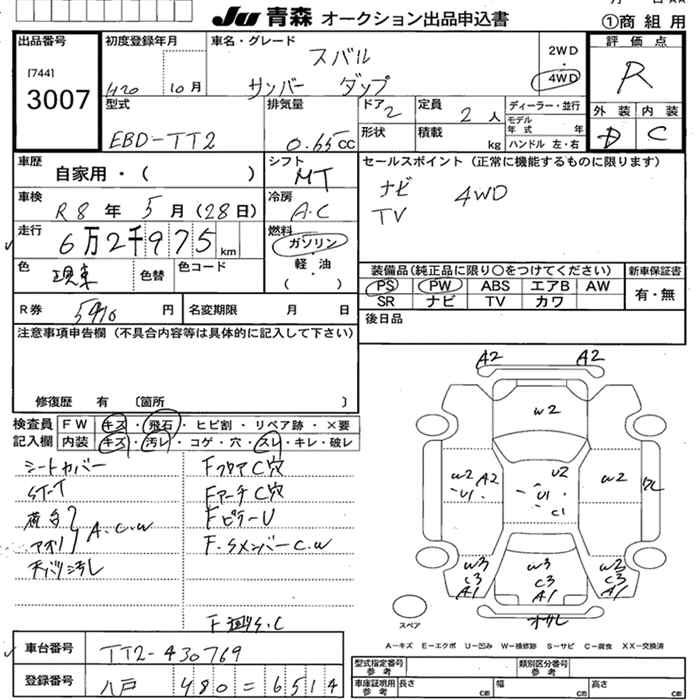 Ju 青森 オークション出品申込書
①商組用
出品番号
[744]
3007
初度登録年月
H20 10月
車名・グレード
スバル
サンバー ダンプ
2WD
4WD
評価点
R
型式
EBD-TT2
排気量
0.65cc
ドア
2
定員
2人
形状
積載
kg
ディーラー・並行
モデル年式 年
ハンドル 左・右
外装
D
内装
C
車歴
自家用・( )
シフト
MT
車検
R8年5月(28日)
冷房
A.C
走行
6万2千975km
燃料
ガソリン
軽・油
( )
色
色替
色コード
セールスポイント(正常に機能するものに限ります)
ナビ 4WD
TV
装備品(純正品に限り○をつけてください)
PS PW ABS エアB AW
SR ナビ TV カワ
新車保証書
有・無
R券
円
名変期限 月 日
後日品
注意事項申告欄(不具合内容等は具体的に記入して下さい)
修復歴 有 〔箇所 〕
検査員
記入欄
FW キズ・飛石・ヒビ割・リペア跡・×要
内装 キズ・汚レ・コゲ・穴・スレ・キレ・破レ
シートカバー
ST-T
荷台
アオリ
A.C.W
天バリ汚レ
FフロアC穴
FアーチC穴
FピラーU
F.SメンバーC.W
F廻りS.C
A2 A2
W2
W2 A2
U1
U2
U1
C1
W2
W3
C3
A1
W3
C3
A1
W2
C3
A1
スペア
A−キズ E−エクボ U−凹み W−補修跡 S−サビ C−腐食 XX−交換済
車台番号
TT2-430769
登録番号
八戸 480=6514
型式指定番号
参考
類別区分番号
参考
車庫証明用
参考
長さ cm
幅 cm
高さ cm